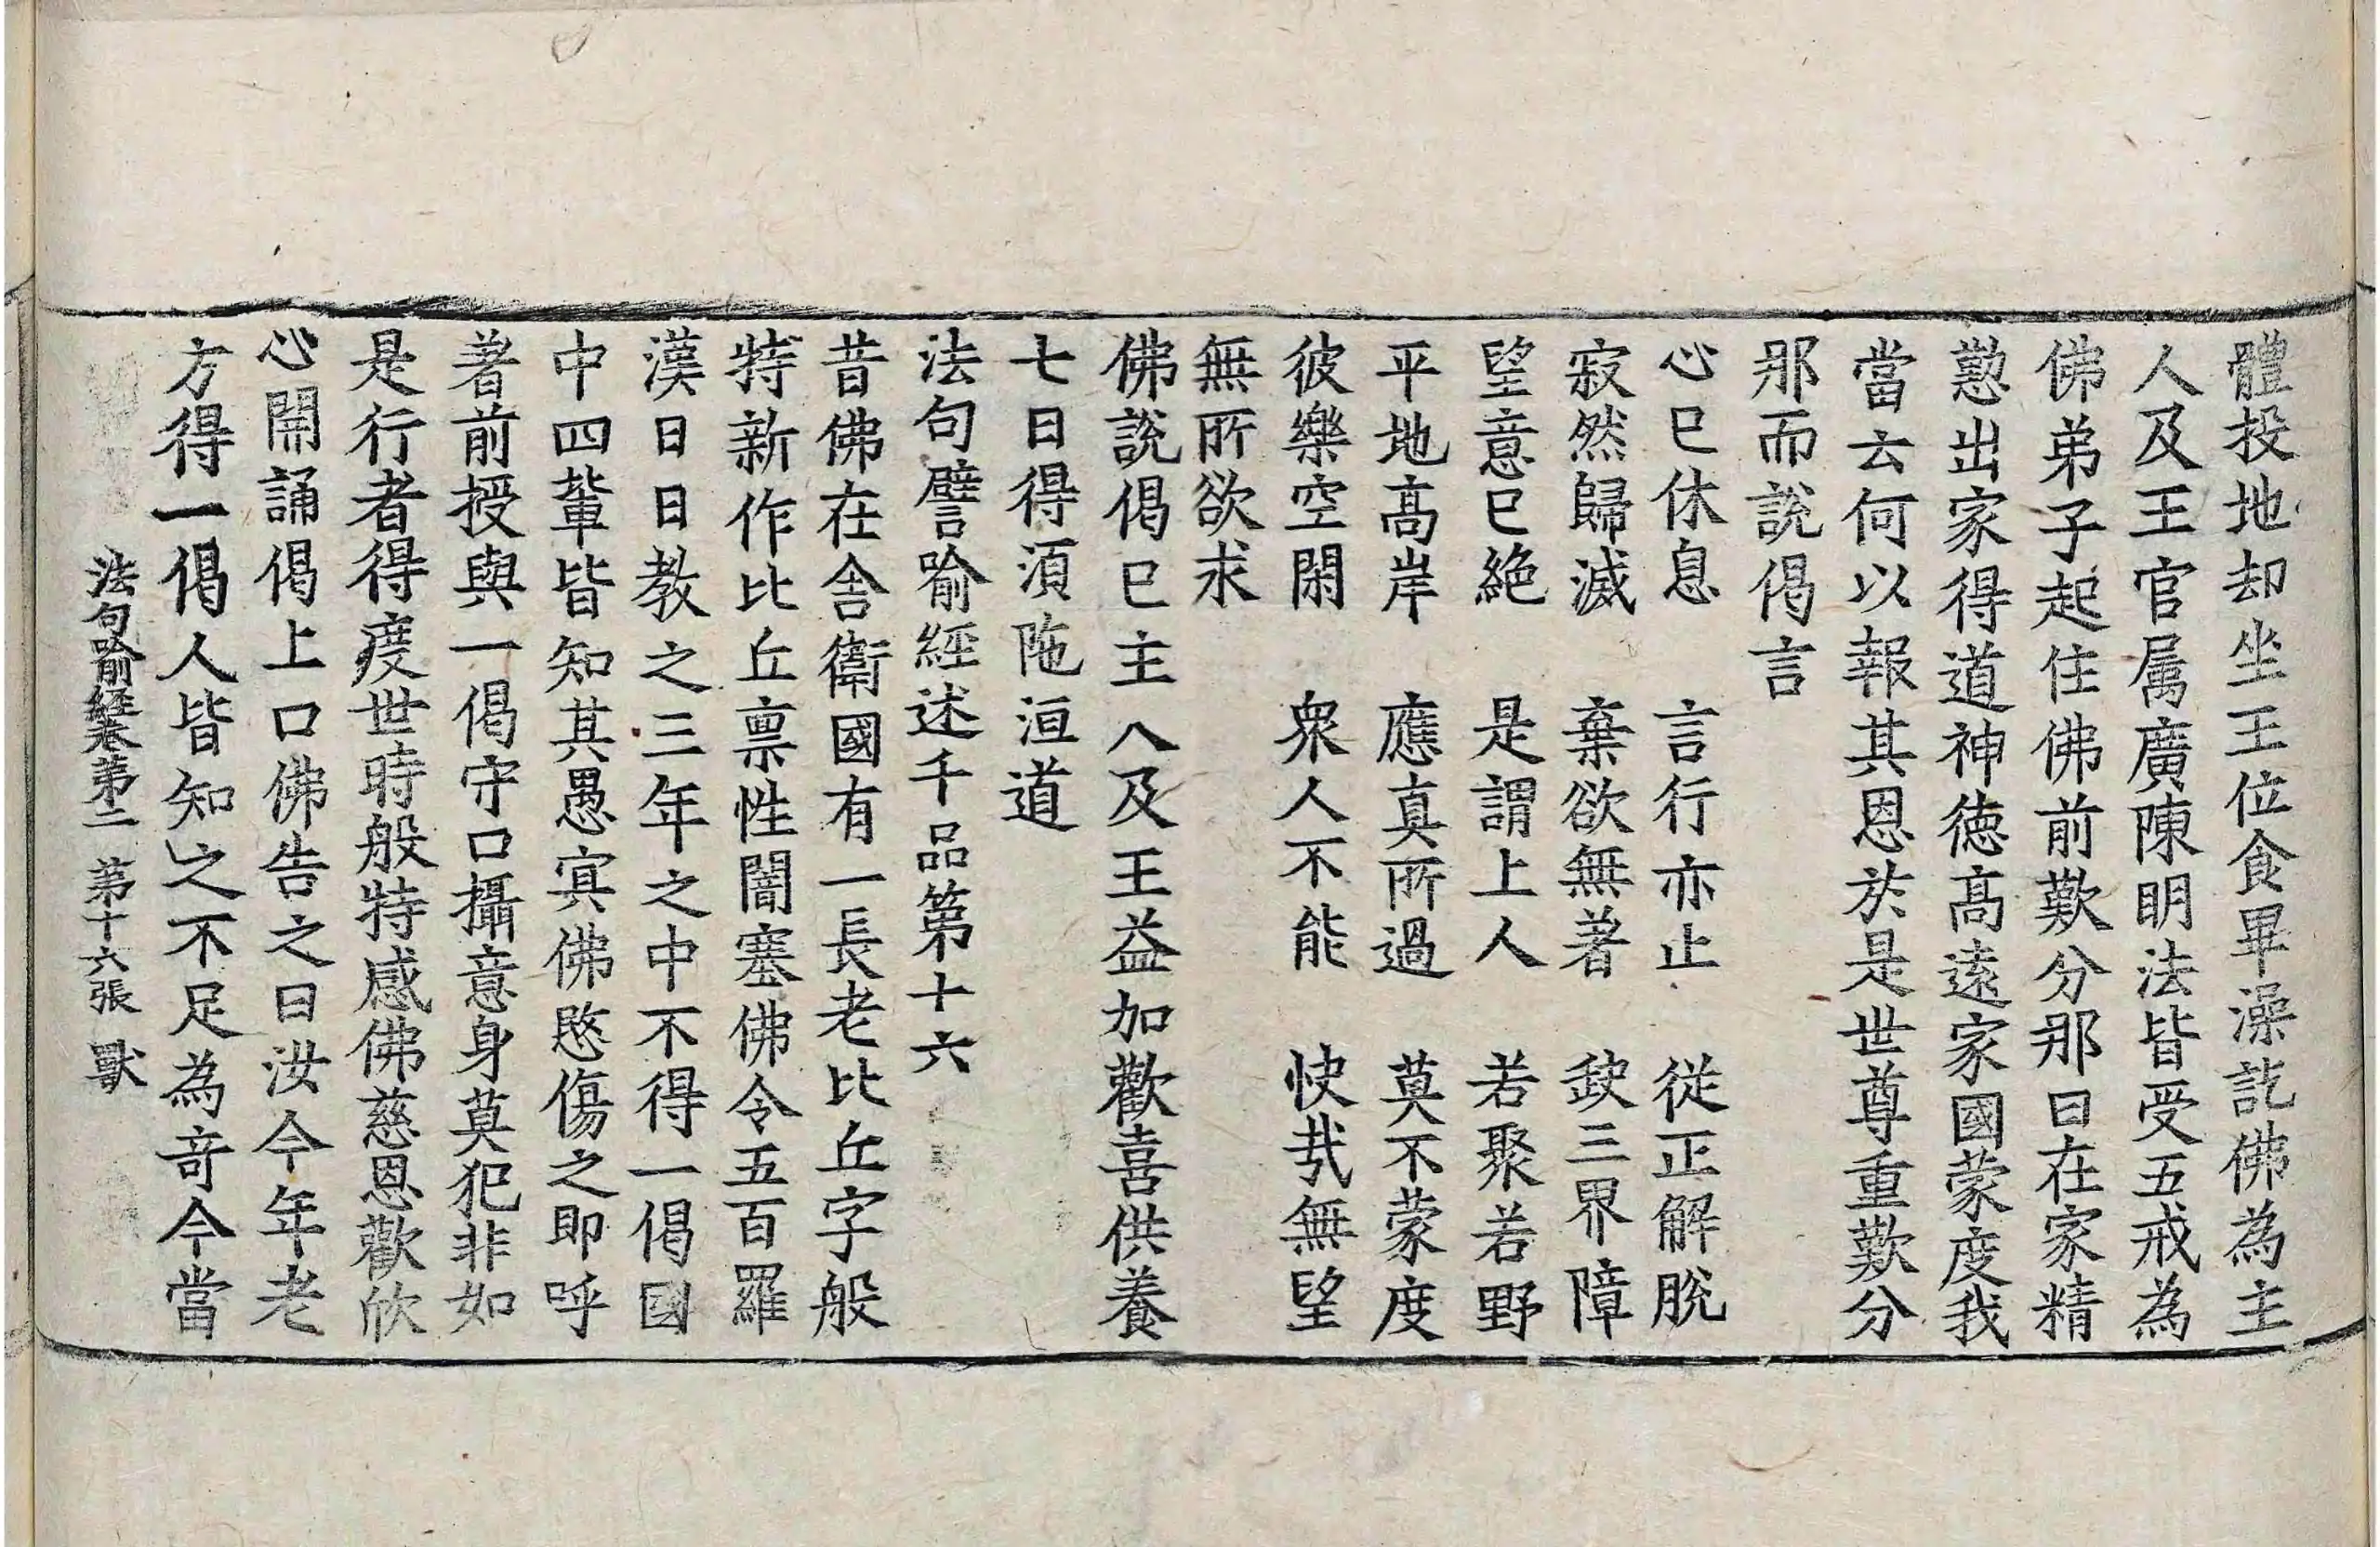 體投地却坐王位食畢澡訖佛為主
人及王官属廣陳明法皆受五戒為
佛弟子起住佛前歎分那曰在家精
懃出家得道神徳髙遠家國蒙度我
當云何以報其恩於是世尊重歎分
那而說偈言
心已休息　言行亦止　從正解脫
寂然歸滅　棄欲無著　𡙇三界障
望意已絶　是謂上人　若聚若野
平地髙岸　應真所過　莫不蒙度
彼樂空閑　衆人不能　快㢤無望
無所欲求
佛說偈已主人及王益加歡喜供養
七日得湏陁洹道
法句譬喻經述千品第十六
昔佛在舍衛國有一長老比丘字般
特新作比丘禀性闇塞佛令五百羅
漢日日教之三年之中不得一偈國
中四軰皆知其愚㝠佛愍傷之即呼
著前授與一偈守口攝意身莫犯非如
是行者得度世時般特感佛慈恩歡欣
心開誦偈上口佛告之曰汝今年老
方得一偈人皆知之不足為竒今當
法句喻経卷第二　第十六張　獸